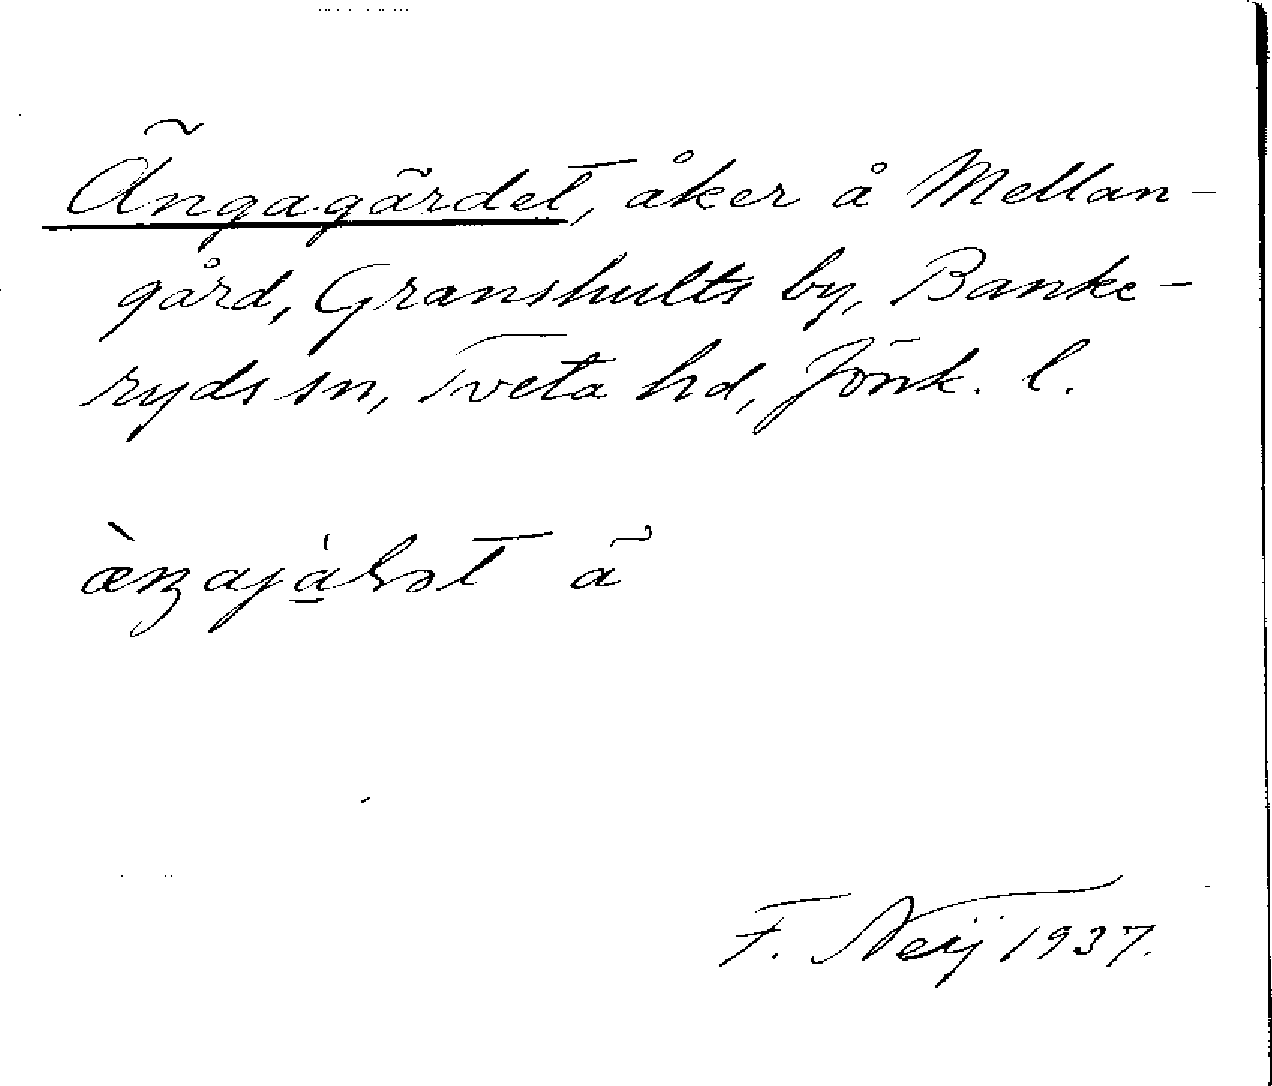 Ängagärdet, åker å Mellan-
gård, Granshults by, Banke-
ryds sn, Tveta hd, Jönk. l.
F. Neij 1937.